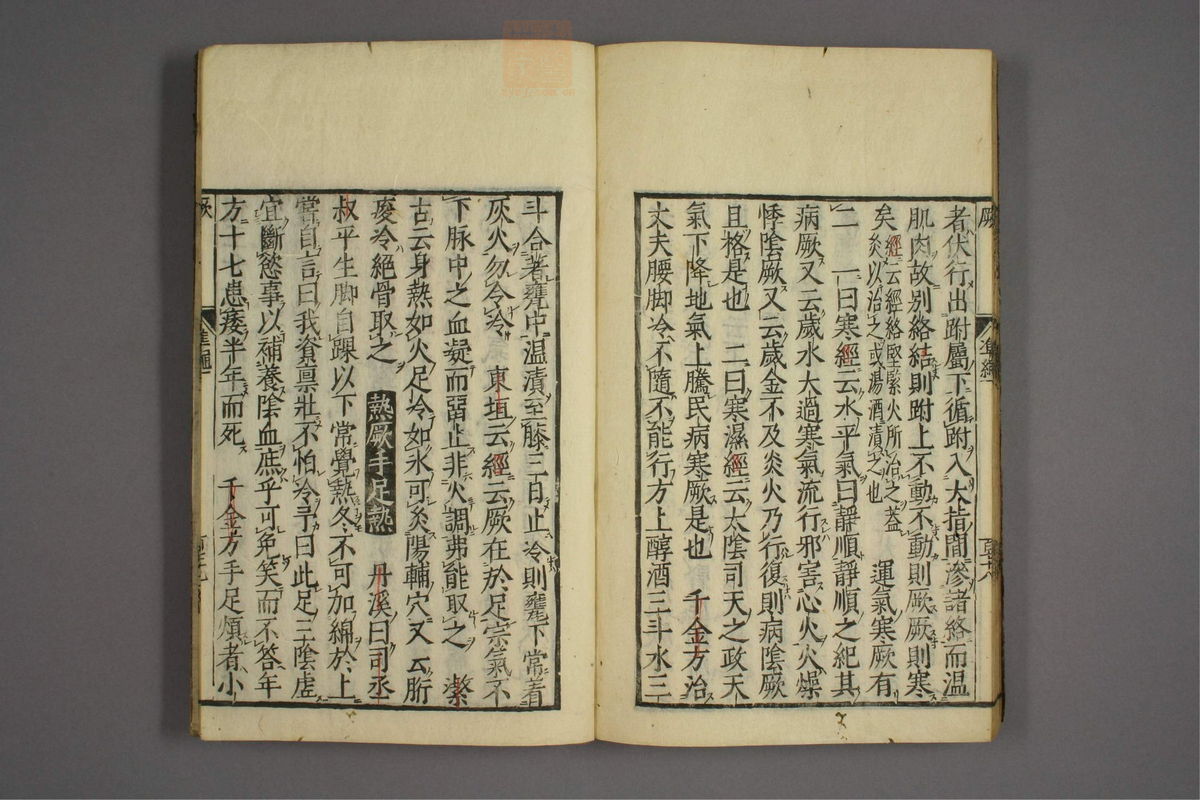 厥
者伏行出跗屬下循跗入大指間滲諸絡而溫
肌肉故別絡結則跗上不動不動則厥厥則寒
矣經云經絡堅緊火所治之蓋
灸以治之或湯酒漬之也
運氣寒厥有
二 一曰寒經云水平氣曰靜順靜順之紀其
病厥又云歲水太過寒氣流行邪害心火火燥
悸陰厥又云歲金不及炎火乃行復則病陰厥
且格是也 二曰寒濕經云太陰司天之政天
氣下降地氣上騰民病寒厥是也 千金方治
丈夫腰脚冷不隨不能行方上醇酒三斗水三
斗合著甕中温漬至膝三日止冷則甕下常着
灰火勿令冷 東垣云經云厥在於足宗氣不
下脉中之血凝而畱止非火調弗能取之 潔
古云身熱如火足冷如氷可灸陽輔穴又云胻
痠冷絕骨取之 熱厥手足熱 丹溪曰司丞
叔平生脚自踝以下常覺熱冬不可加綿於上
嘗自言曰我資禀壯不怕冷予曰此足三陰虛
宜斷慾事以補養陰血庶乎可免笑而不答年
方十七患痿半年而死 千金方手足煩者小
厥